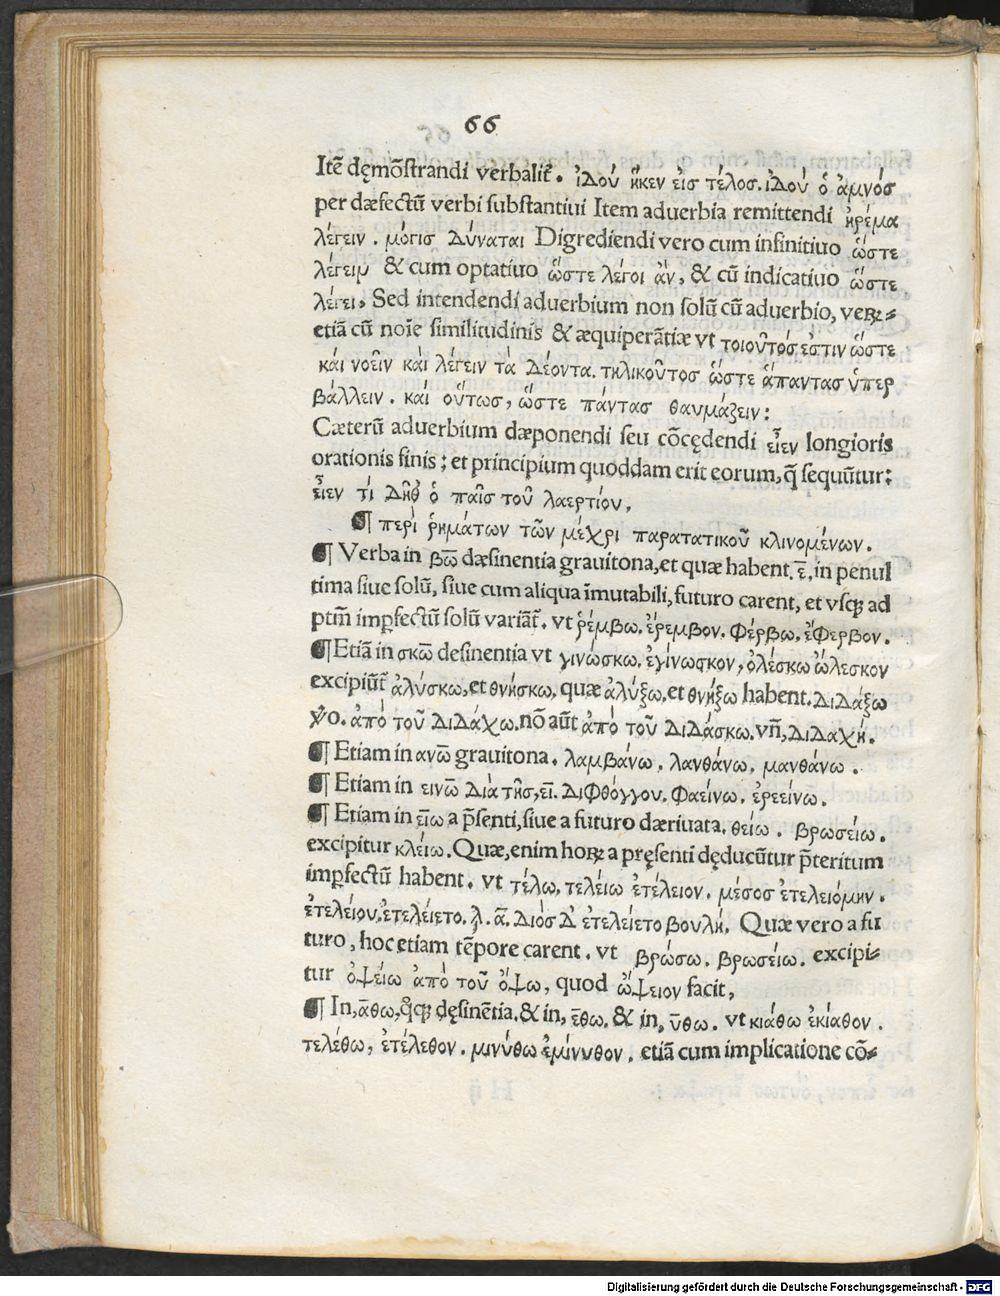 66
Itē dęmōstrandi verbalit̄. ἰδού ἥκεν εἰσ τέλοσ. ἰδού ὁ ἀμνόσ
per dæfectū verbi substantiui Item aduerbia remittendi ἠρέμα
λέγειν. μόγισ δύναται Digrediendi vero cum infinitiuo ὥστε
λέγειμ & cum optatiuo ὥστε λέγοι ἀν, & cū indicatiuo ὥστε
λέγει, Sed intendendi aduerbium non solū cū aduerbio, veꝝ-
etiā cū noīe similitudinis & æquiperātiæ vt τοιοῦτόσ ἐστιν ὥστε
κάι νοεῖν κάι λέγειν τὰ δέοντα. τηλικοῦτοσ ὥστε ἅπαντασ ὑπερ
βάλλειν. κάι οὕτωσ, ὥστε πάντασ θαυμάζειν:
Cæterū aduerbium dæponendi seu cōcędendi εἶεν longioris
orationis finis; et principium quoddam erit eorum, q̄ sequūtur:
εἶεν τί δῆθ ὁ παῖσ τοῦ λαερτίου,
¶ περὶ ῥημάτων τῶν μέχρι παρατατικοῦ κλινομένων.
¶ Verba in βω̄ dæsinentia grauitona, et quæ habent. ε̄, in penul
tima siue solū, siue cum aliqua īmutabili, futuro carent, et vsqꝫ ad
ptm̄ imꝑfectū solū variāt̄. vt ῥέμβω. ἐρεμβον. φέρβω. ἐφερβον.
¶ Etiā in σκω̄ desinentia vt γινώσκω. ἐγίνωσκον, ὀλέσκω ὤλεσκον
excipiūt̄ ἀλύσκω, et θνήσκω, quæ ἀλύξω. et θνήξω habent. διδάξω
v̊o. ἀπὸ τοῦ διδάχω. nō aūt ἀπὸ τοῦ διδάσκω. vn̄, διδαχή.
¶ Etiam in ανω̄ grauitona. λαμβάνω. λανθάνω. μανθάνω.
¶ Etiam in εινω̄ διὰ τῆσ, ει̅. διφθόγγου. φαείνω. ἐρεείνω.
¶ Etiam in ει̅ω a p̄senti, siue a futuro dæriuata. θείω. βρωσείω.
excipitur κλείω. Quæ, enim hoꝝ a pręsenti dęducūtur p̄teritum
imꝑfectū habent. vt τέλω, τελείω ἐτέλειον. μέσοσ ἐτελειόμην.
ἐτελείου. ἐτελείετο. λ. α̅. Διόσ δ' ἐτελείετο βουλή. Quæ vero a fu
turo, hoc etiam tēpore carent. vt βρώσω. βρωσείω. excipi-
tur ὀψείω ἀπὸ τοῦ ὄψω, quod ὤψειον facit,
¶ In, α̅θω, q̊qꝫ dęsinētia. & in, ε̅θω. & in, υ̅θω. vt κιάθω ἐκίαθον.
τελέθω, ἐτέλεθον. μινύθω ἐμίνυθον. etiā cum implicatione cō-
Digitalisierung gefördert durch die Deutsche Forschungsgemeinschaft - DFG